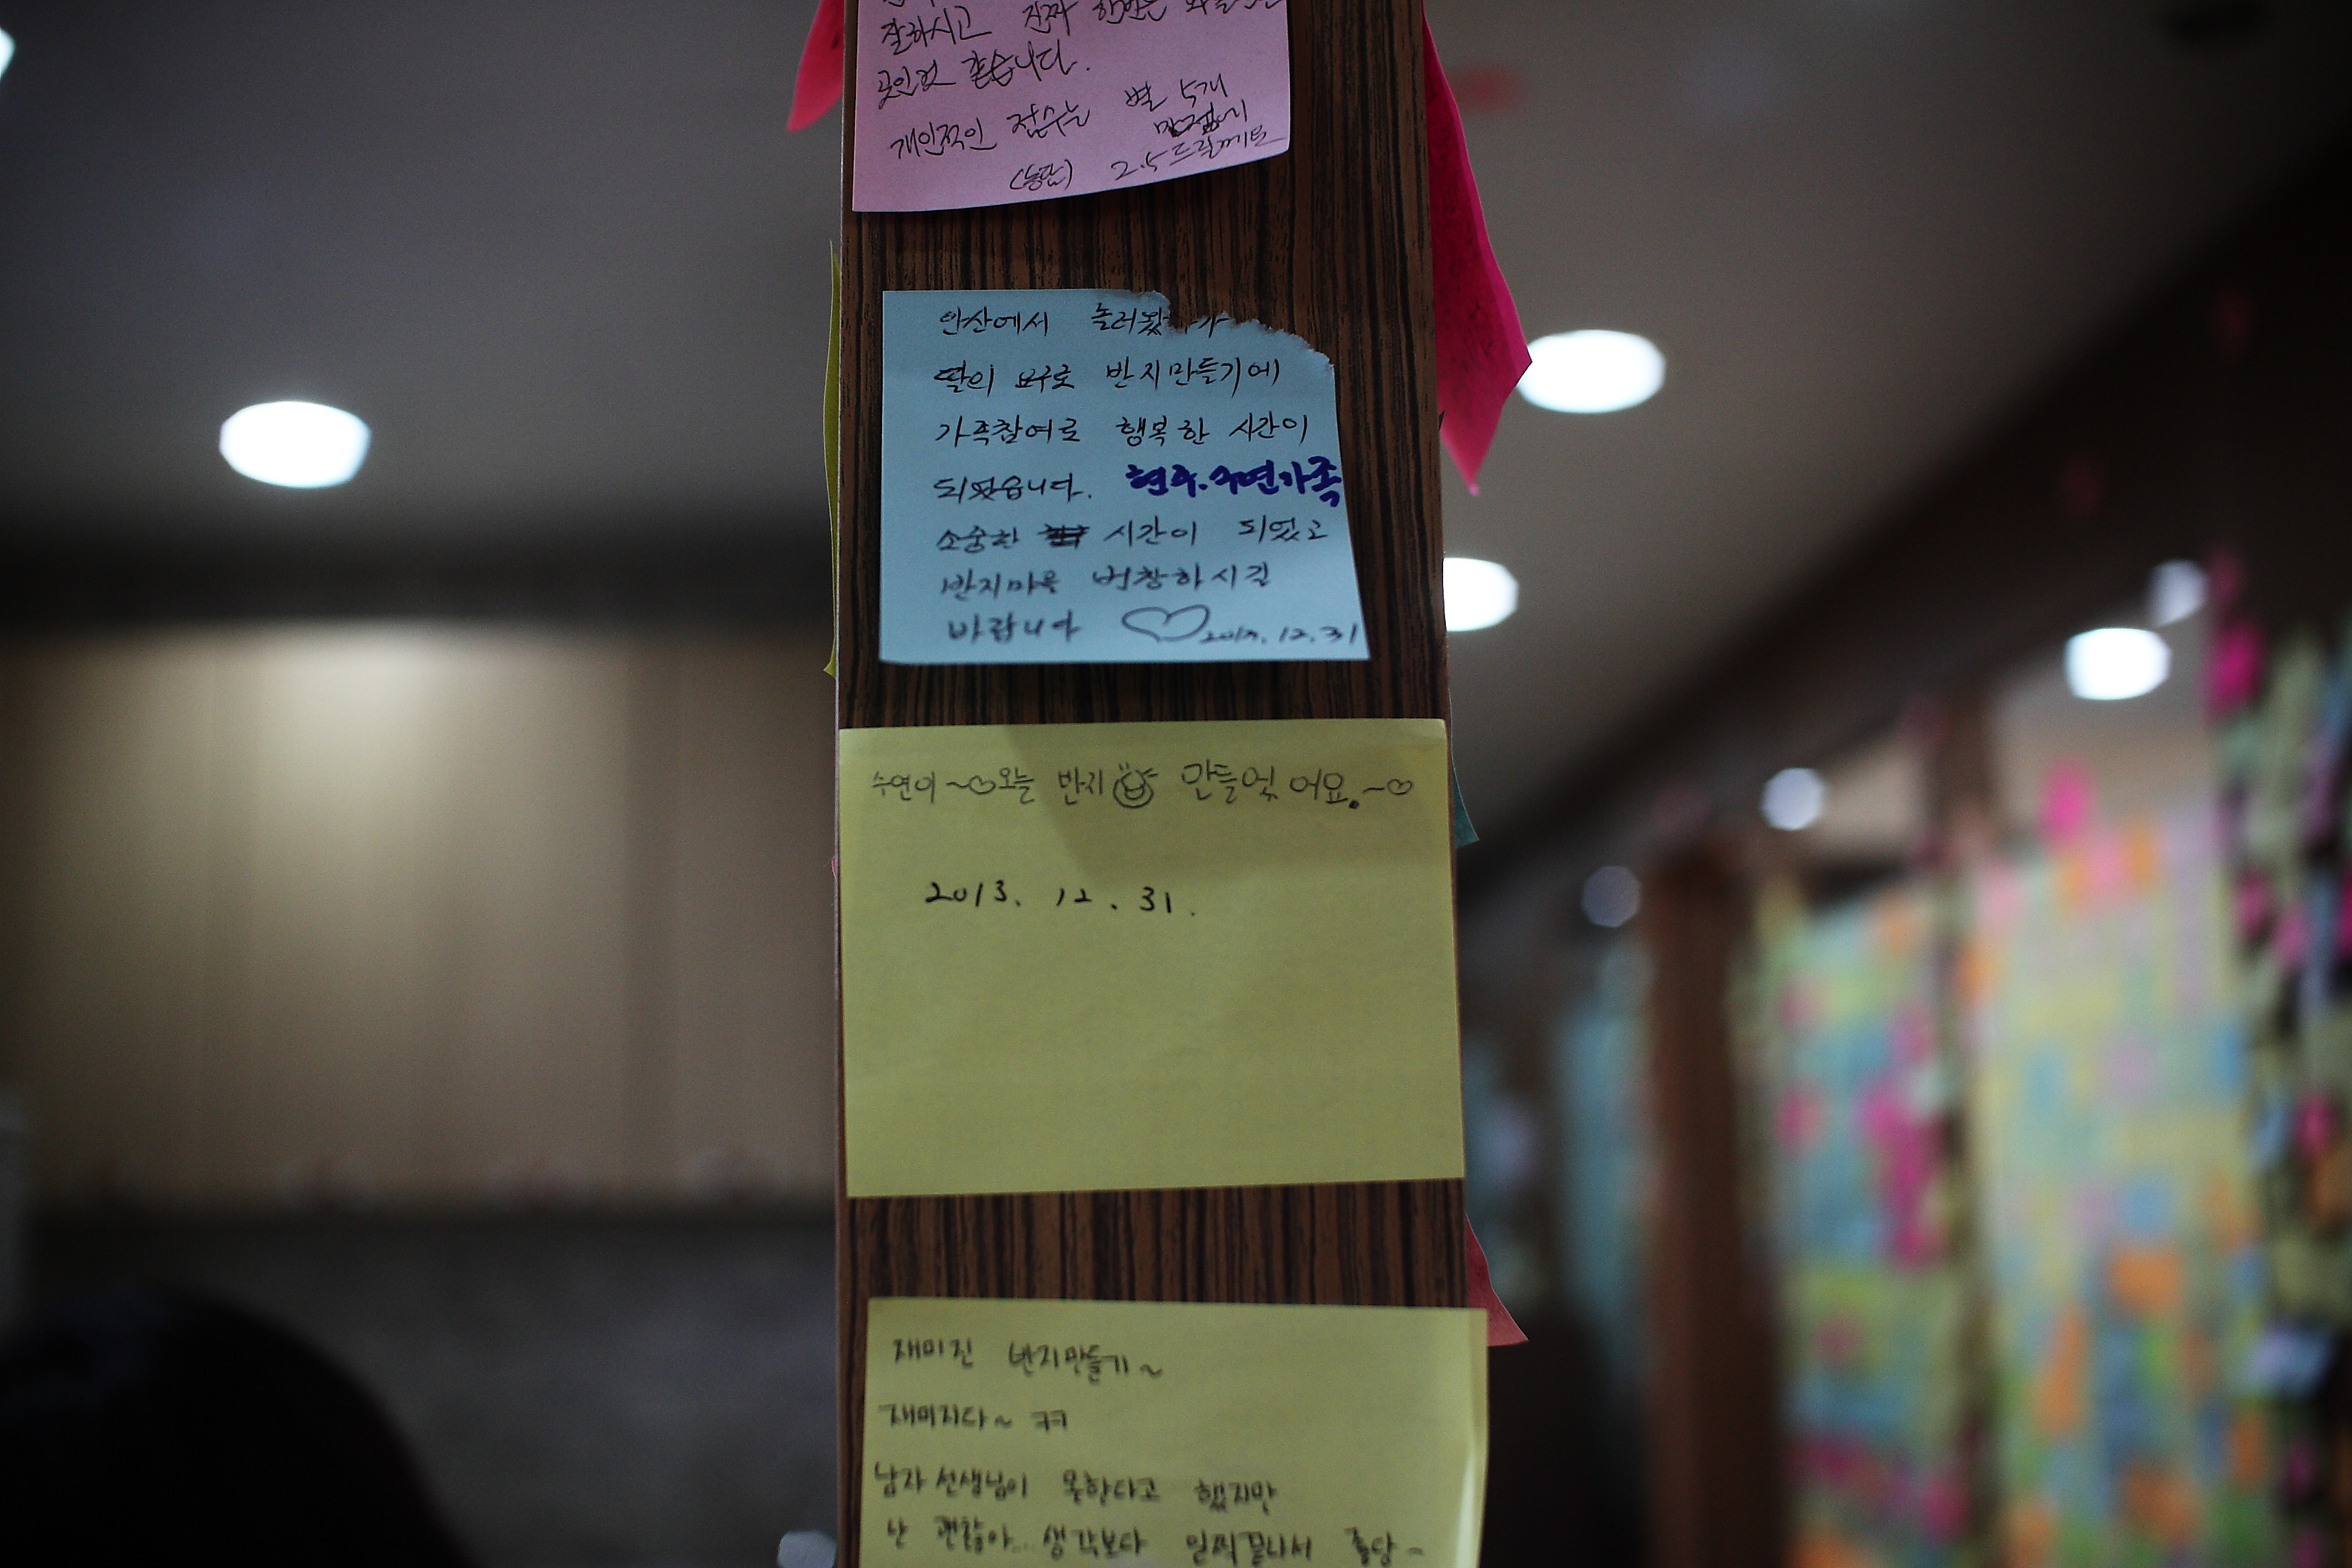 잘하시고 진짜 한번은
곳인것 같습니다.
개인적인 점수는 별 5개
만점에
(농담) 2.5드릴께요
안산에서 놀러왔다가
딸의 요구로 반지만들기에
가족참여로 행복한 시간이
되었습니다. 현주.수연가족
소중한 시간이 되었고
반지마을 번창하시길
바랍니다 2013.12.31
수연이~♡오늘 반지 만들엇어요.~♡
2013. 12. 31.
재미진 반지만들기~
재미지다~ ㅋㅋ
남자선생님이 못한다고 했지만
난 괜찮아... 생각보다 일찍끝나서 좋당~